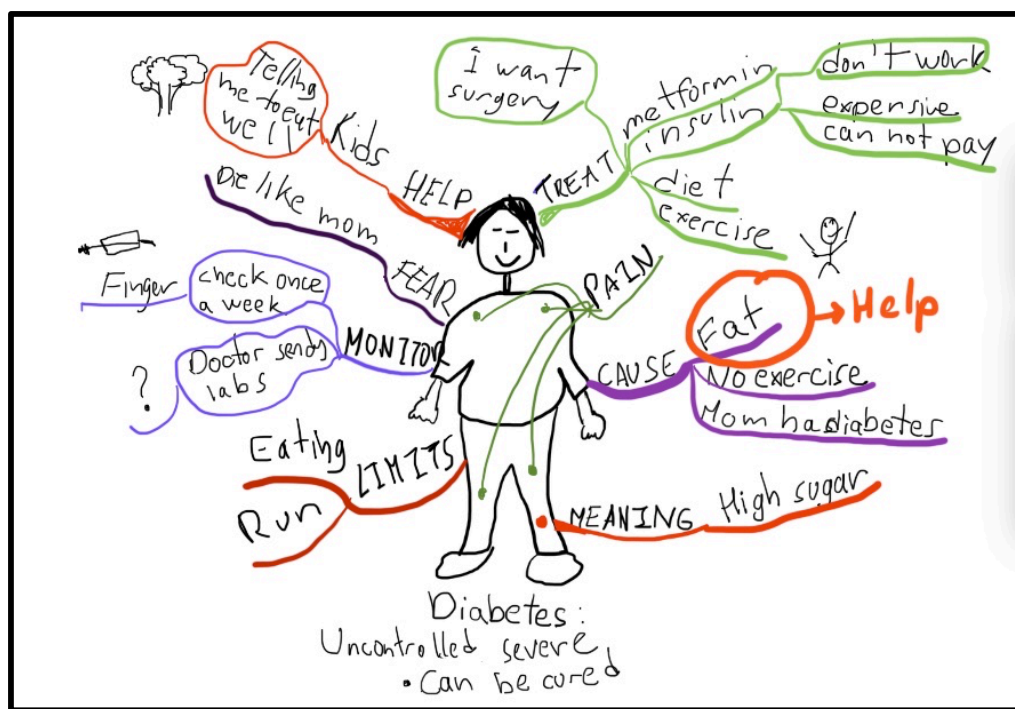 Telling
me to eat
well
Kids
HELP
Die like mom
FEAR
Finger
check once
a week
MONITOR
Doctor sends
labs
?
Eating
Run
LIMITS
i want
surgery
TREAT
metformin
insulin
don't work
expensive
can not pay
diet
exercise
PAIN
CAUSE
Fat
Help
No exercise
Mom has diabetes
MEANING
High sugar
Diabetes:
Uncontrolled severe
• Can be cured